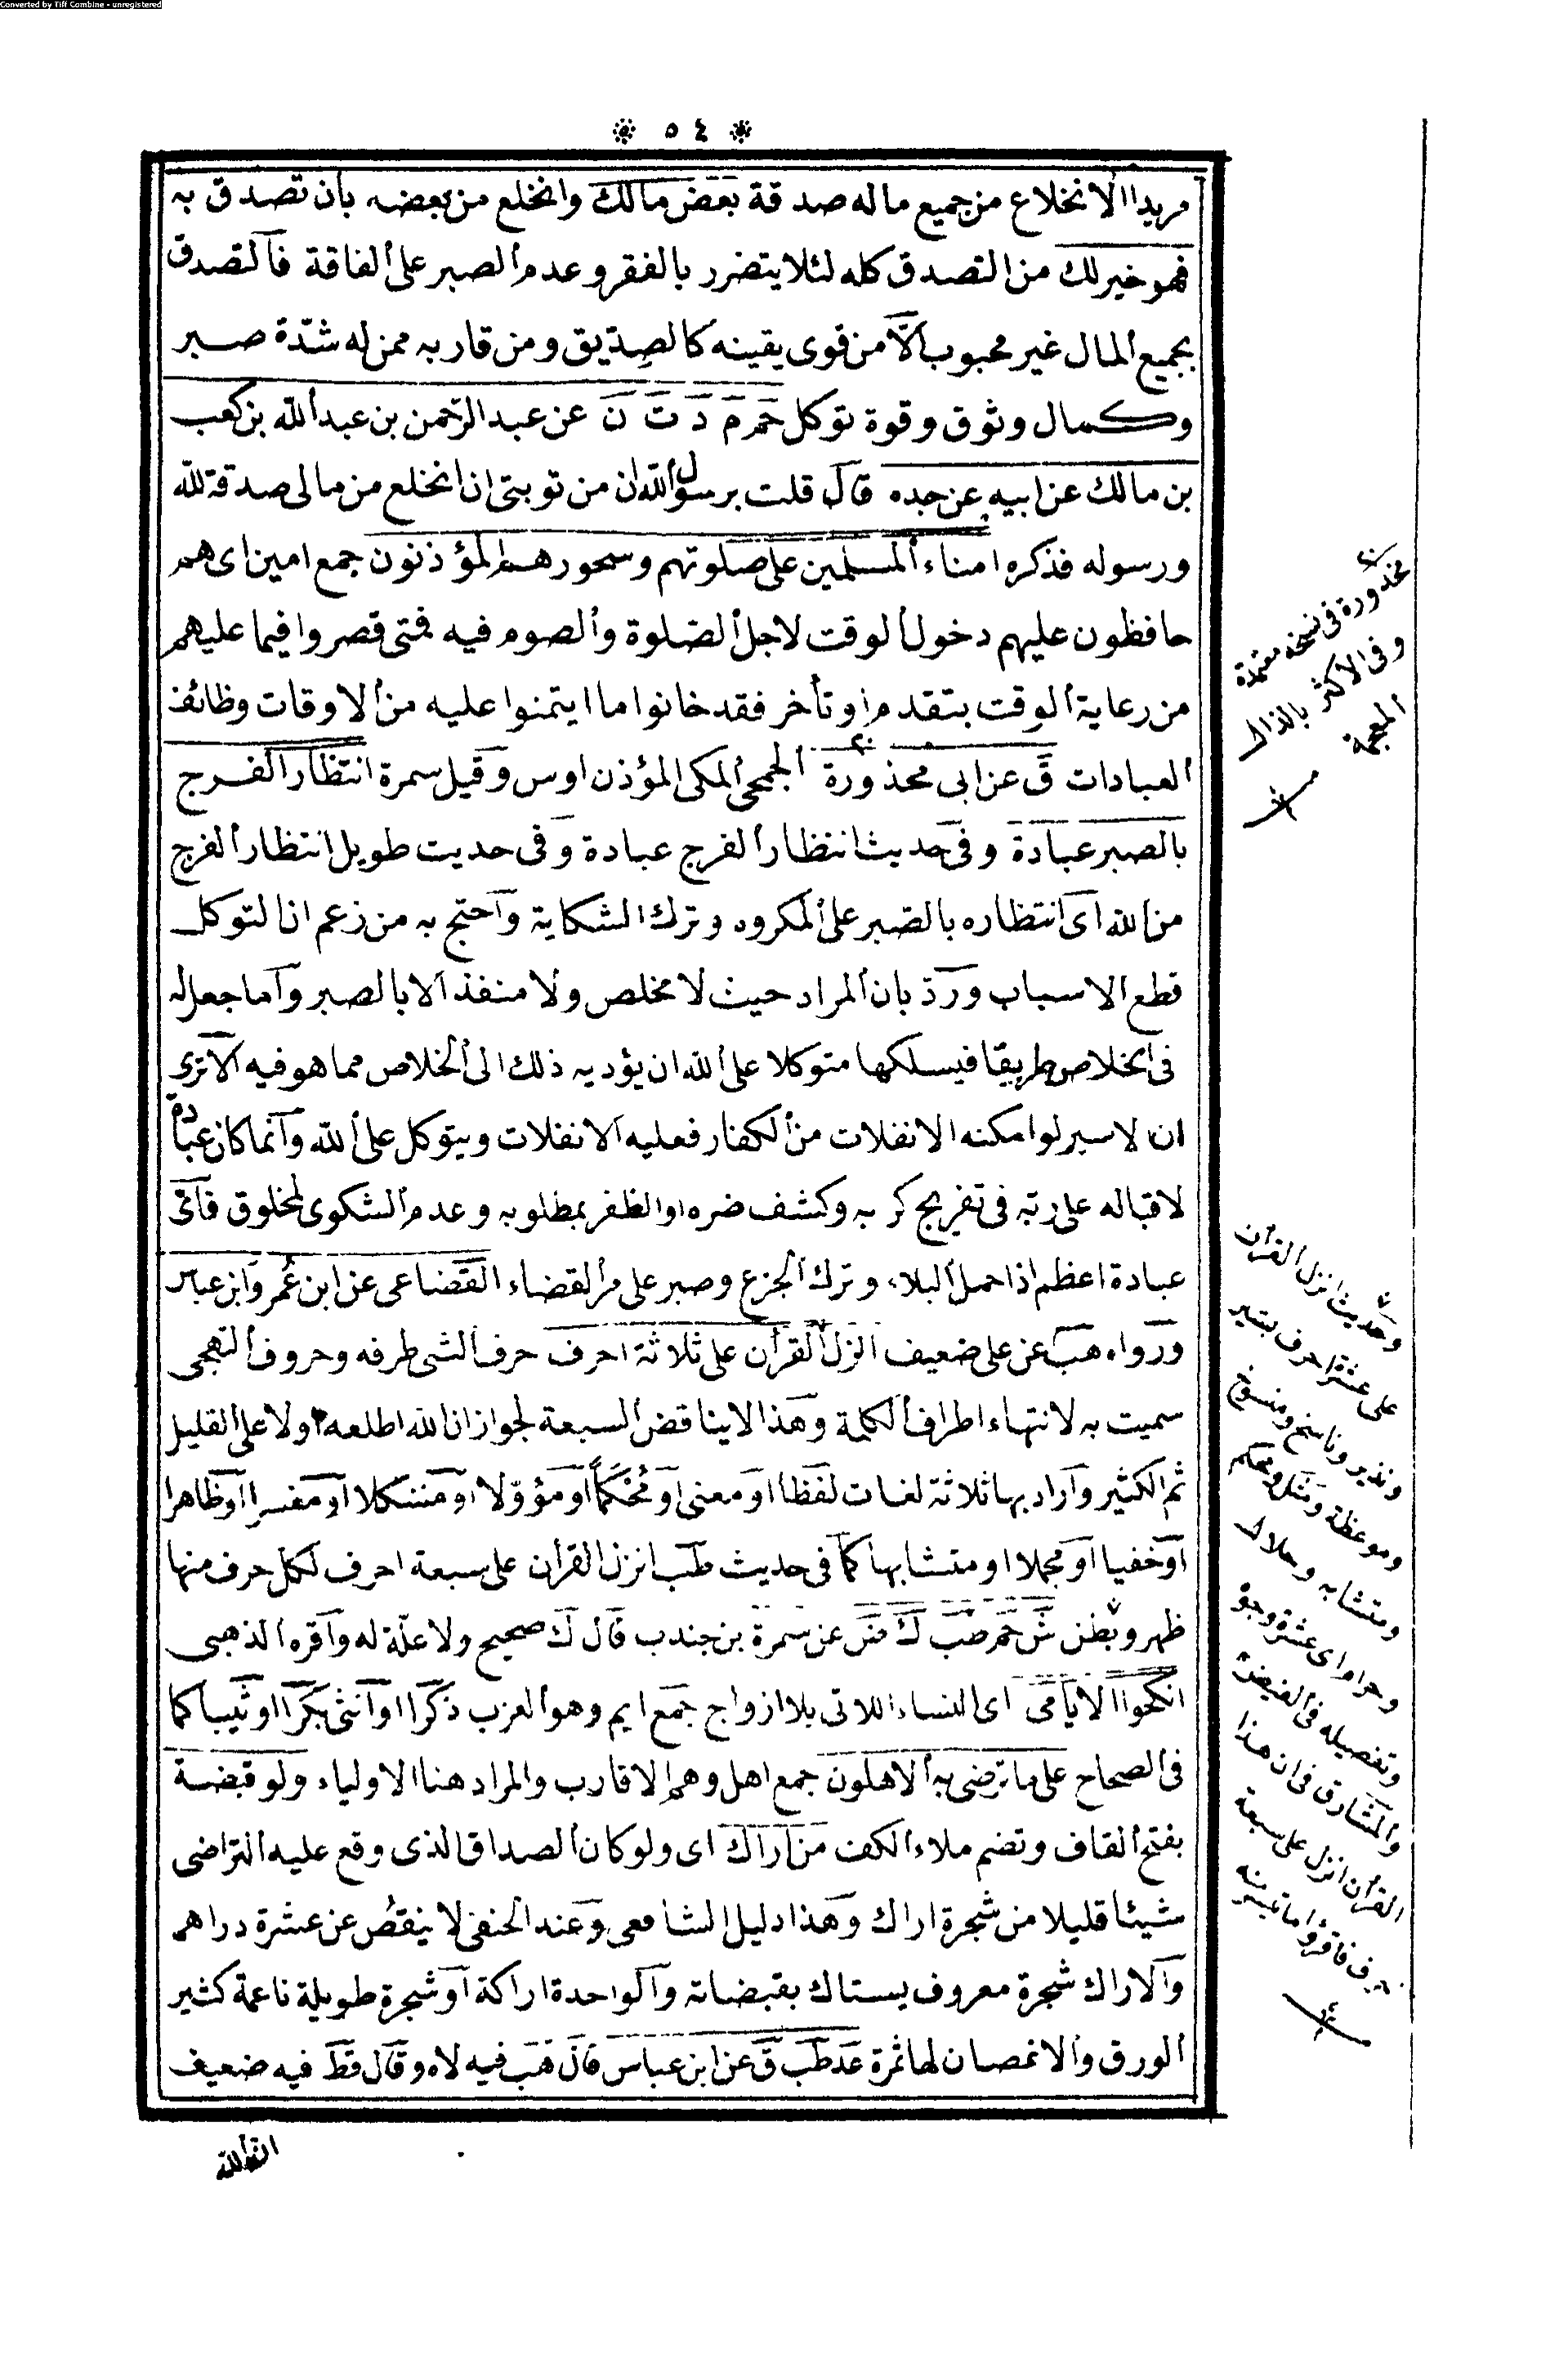 Converted by Tiff Combine - unregistered
* ٥٤ *
مريدا الانخلاع من جميع ماله صدقة بعض مالك وانخلع من بعضه بان تصدق به
فهو خير لك من التصدق كله لئلا يتضرر بالفقر وعدم الصبر على الفاقة فالتصدق
بجميع المال غير محبوب الّا من قوى يقينه كالصِدّيق ومن قاربه ممن له شدّة صبر
وكمال وثوق وقوة توكل حم م د ت ن عن عبد الرّحمن بن عبد الله بن كعب
بن مالك عن ابيه عن جده قال قلت يرسول الله ان من توبتى ان انخلع من مالى صدقة لله
ورسوله فذكره امناء المسلمين على صلوتهم وسحورهم المؤذنون جمع امين اى هم
حافظون عليهم دخول الوقت لاجل الصّلوة والصوم فيه فمتى قصروا فيما عليهم
من رعاية الوقت بتقدم او تأخر فقد خانوا ما ايتمنوا عليه من الاوقات وظائف
العبادات ق عن ابى محذورة الجمحى المكى المؤذن اوس وقيل سمرة انتظار الفرج
بالصبر عبادة وفى حديث انتظار الفرج عبادة وفى حديث طويل انتظار الفرج
من الله اى انتظاره بالصّبر على المكروه وترك الشكاية واحتج به من زعم ان التوكل
قطع الاسباب وردّ بان المراد حيث لا مخلص ولا منفذ الا بالصبر واما جعل له
فى الخلاص طريقا فيسلكها متوكلا على الله ان يؤديه ذلك الى الخلاص مما هو فيه الا ترى
ان لاسير لو امكنه الانفلات من الكفار فعليه الانفلات ويتوكل على الله وانما كان عبادة
لاقباله على ربّه فى تفريج كربه وكشف ضره او الظفر بمطلوبه وعدم الشكوى لمخلوق فاىّ
عبادة اعظم اذا حمل البلاء وترك الجزع وصبر على مر القضاء القضاعى عن ابن عُمر وابن عباس
ورواه هب عن على ضعيف انزل القرأن على ثلاثة احرف حرف الشى طرفه وحروف التهجى
سميت به لانتهاء اطراف الكلمة وهذا لا يناقض السبعة لجواز ان الله اطلعه اولا على القليل
ثم الكثير واراد بها ثلاثة لغات لفظا او معنى او مُحْكَمًا او مؤوّلا او مشكلا او مفسرا او ظاهرا
او خفيا او مجملا او متشابها كما فى حديث طب انزل القرأن على سبعة احرف لكل حرف منها
ظهر وبطن ش حم طب ك ض عن سمرة بن جندب قال ك صحيح ولا علّة له واقره الذهبى
انكحوا الايامى اى النساء اللاتى بلا ازواج جمع ايم وهو العزب ذكرا او انثى بكرا او ثيبا كما
فى الصحاح على ما ترضى به الاهلون جمع اهل وهم الاقارب والمراد هنا الاولياء ولو قبضة
بفتح القاف وتضم ملاء الكف من اراك اى ولو كان الصداق الذى وقع عليه التراضى
شيئا قليلا من شجرة اراك وهذا دليل الشافعى وعند الحنفى لا ينقص عن عشرة دراهم
والاراك شجرة معروف يستاك بقبضانه والواحدة اراكة او شجرة طويلة ناعمة كثير
الورق والاغصان لها ثمرة عد طب ق عن ابن عباس قال هب فيه لاه وقال قط فيه ضعيف
اتقوا الله
مخدورة فى نسخه معتمدة
وفى الاكثر بالذال
المعجمة
وحديث انزل القرأن
على عشرة احرف بشير
ونذير وناسخ ومنسوخ
وموعظة ومثل ومحكم
ومتشابه وحلال
وحرام اى عشرة وجوه
وتفصيله فى الفيض
والمشارق فى ان هذا
القرأن انزل على سبعة
احرف فاقرؤا ما تيسر منه